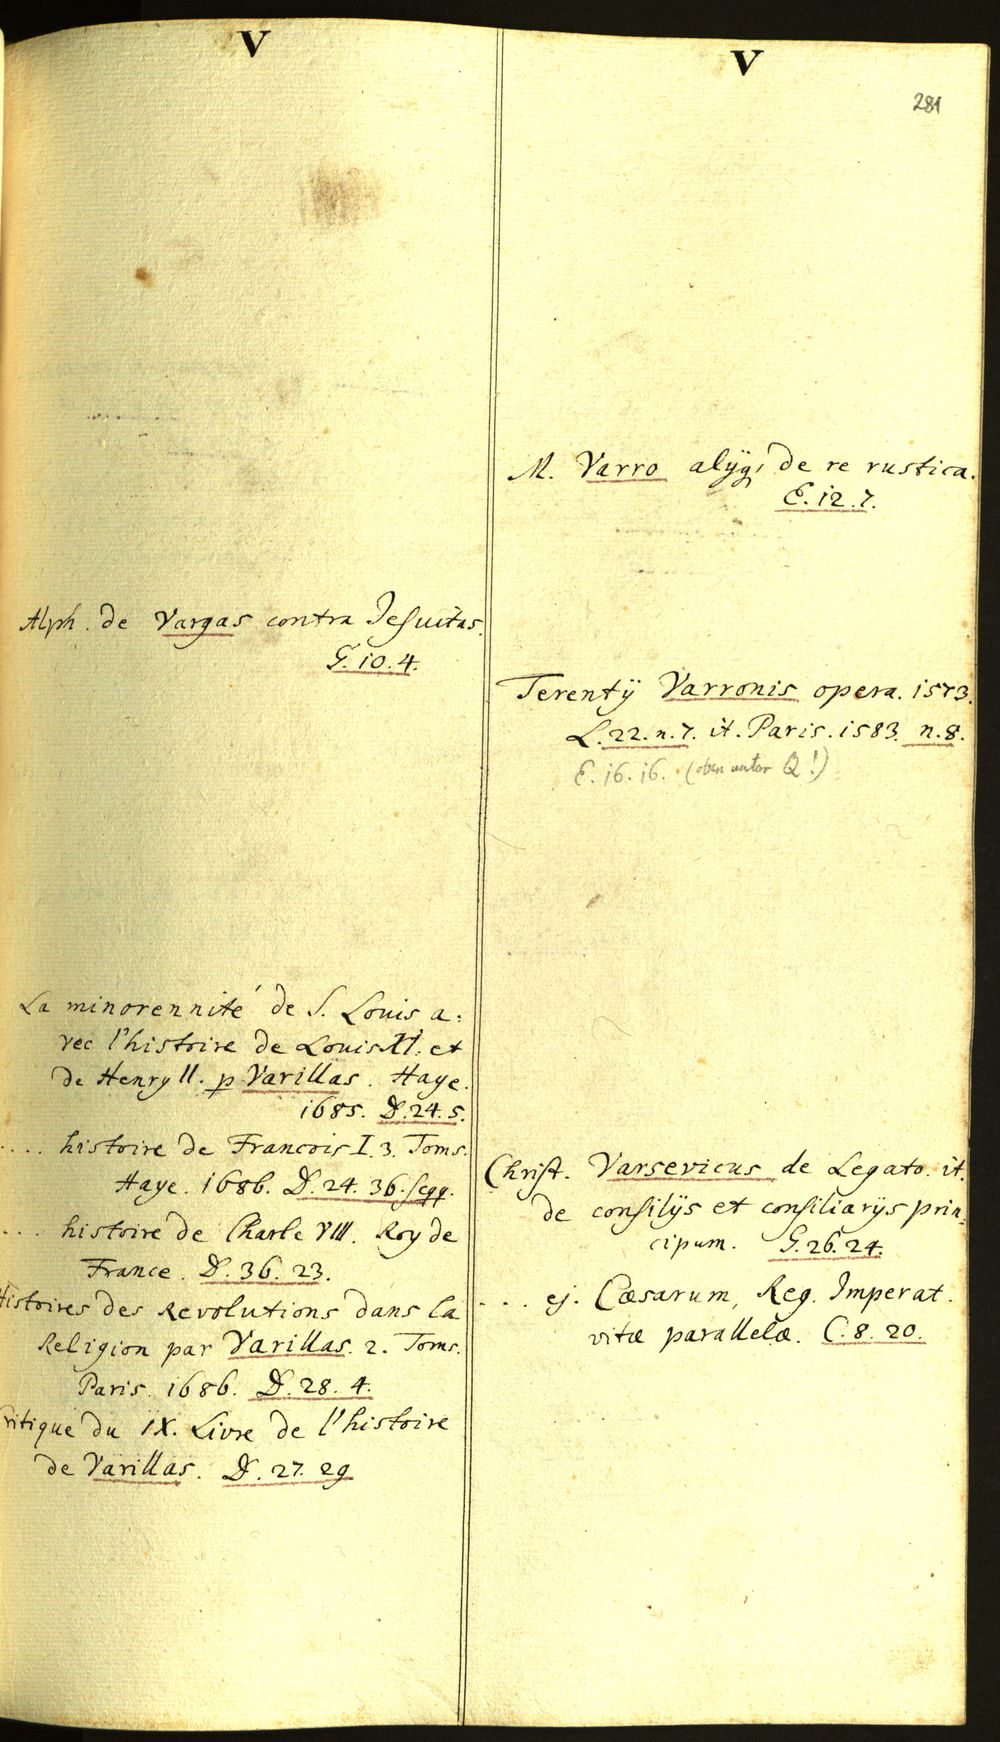 V
Alph. de Vargas contra Jesuitas.
G. 10. 4.
La minorennité de S. Louis a:
vec l'histoire de Louis XI. et
de Henry II. p Varillas. Haye.
1685. D. 24. 5.
.... histoire de Francois I. 3. Toms.
Haye. 1686. D. 24. 36. seqq.
.... histoire de Charle VIII. Roy de
France. D. 36. 23.
Histoires des Revolutions dans la
Religion par Varillas. 2. Toms.
Paris. 1686. D. 28. 4.
Critique du IX. Livre de l'histoire
de Varillas. D. 27. 29
V
281
M. Varro alÿq, de re rustica.
E. 12. 7.
Terentÿ Varronis opera. 1573.
L. 22. n. 7. it. Paris. 1583. n. 8.
E. 16. 16. (oben unter Q!)
Christ. Varsevicus de Legato. it.
de consilÿs et consiliarÿs prin:
cipum. G. 26. 24.
.... ej. Cæsarum, Reg. Imperat.
vitæ parallelæ. C. 8. 20.